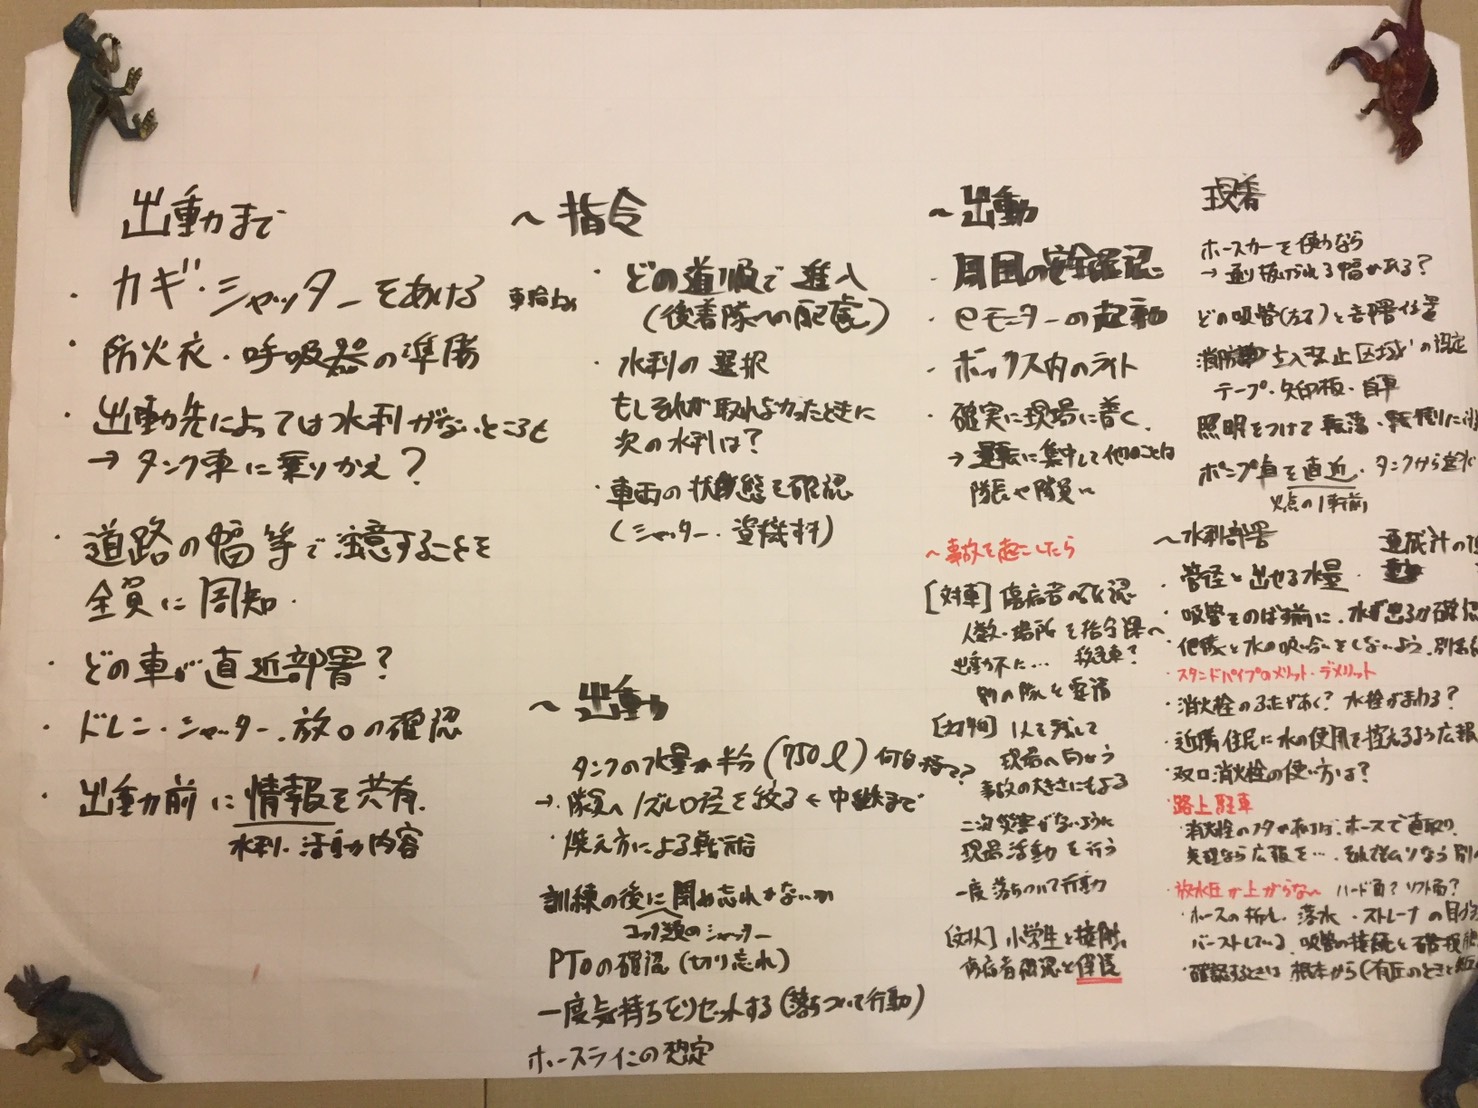 出動まで
・カギ・シャッターをあける
・防火衣・呼吸器の準備
・出動先によっては水利がないところも
→タンク車に乗りかえ?
・道路の幅等で注意することを
全員に周知.
・どの車が直近部署?
・ドレン・シャッター.放口の確認
・出動前に情報を共有.
水利.活動内容
〜指令
車輪止め
・どの道順で進入
(後着隊への配慮)
・水利の選択
もしそれが取れなかったときに
次の水利は?
・車両の状態を確認
(シャッター・資機材)
〜出動
タンクの水量が半分(750ℓ)何分持つ?
→隊員へノズル口径を絞る←中継まで
・燃え方による戦術
訓練の後に閉め忘れがないか
コック類のシャッター
PTOの確認(切り忘れ)
一度気持ちをリセットする(落ちついて行動)
ホースラインの想定
〜出動
・周囲の安全確認
・eモニターの起動
・ボックス内のライト
・確実に現場に着く.
→運転に集中して他のことは
隊長や隊員に
〜事故を起こしたら
[対車]傷病者の確認
人数・場所を指令課へ
出動不に… 救急車?
別の隊を要請
1人を残して
現場へ向かう
事故の大きさにもよる
二次災害がないように
現場活動を行う
一度落ちついて行動
[対人]小学生と接触.
傷病者確認と保護
現着
ホースカーを使うなら
→通り抜けられる幅がある?
どの吸管(左右)と部署位置
消防 立入禁止区域の設定
テープ・矢印板・自車
照明をつけて転落・転倒に
ポンプ車を直近.タンクから送水
火点の1軒前
〜水利部署
連成計の
・管径と出せる水量.
・吸管をのばす前に.水が出るか確認
・他隊と水の吸い合いをしないよう.別
・スタンドパイプのメリット・デメリット
・消火栓のふたがあく?水栓がまわる?
・近隣住民に水の使用を控えるよう広報
・双口消火栓の使い方は?
・路上駐車
消火栓のフタがあけば.ホースで直取り.
無理なら広報を….それでもムリなら別の
・放水圧が上がらない ハード面?ソフト面?
・ホースの折れ.落水・ストレーナの目
バーストしている.吸管の接続と
・確認するときは根本から(有圧のときと